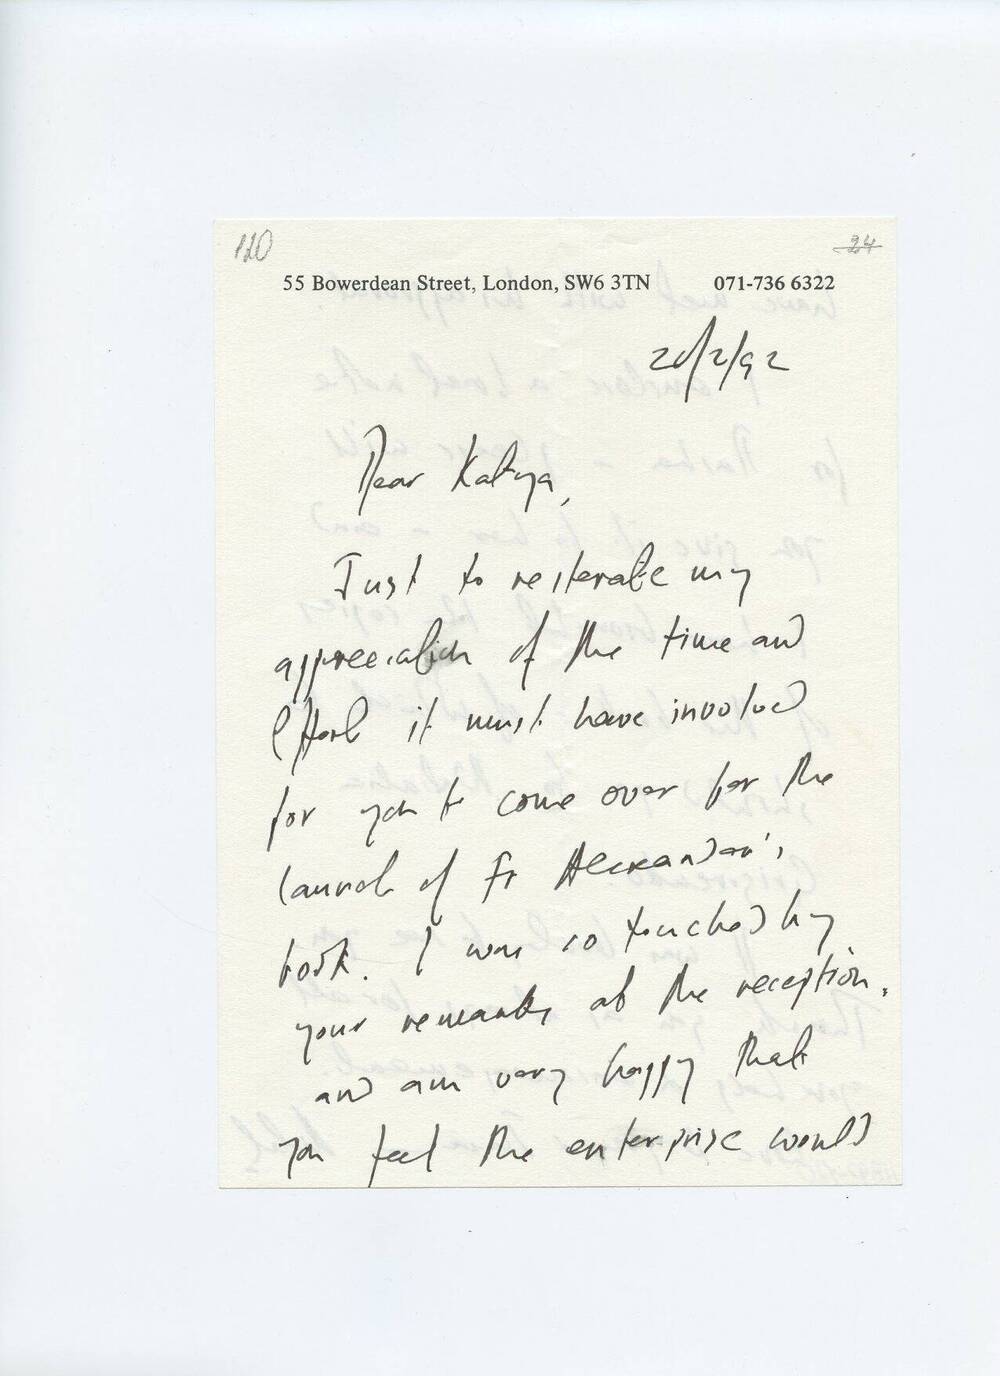 120
24
55 Bowerdean Street, London, SW6 3TN 071-736 6322
20/2/92
Dear Katya,
Just to reiterate my
appreciation of the time and
effort it must have involved
for you to come over for the
launch of Fr Alexander's
book. I was so touched by
your remarks at the reception,
and am very happy that
you feel the enterprise would